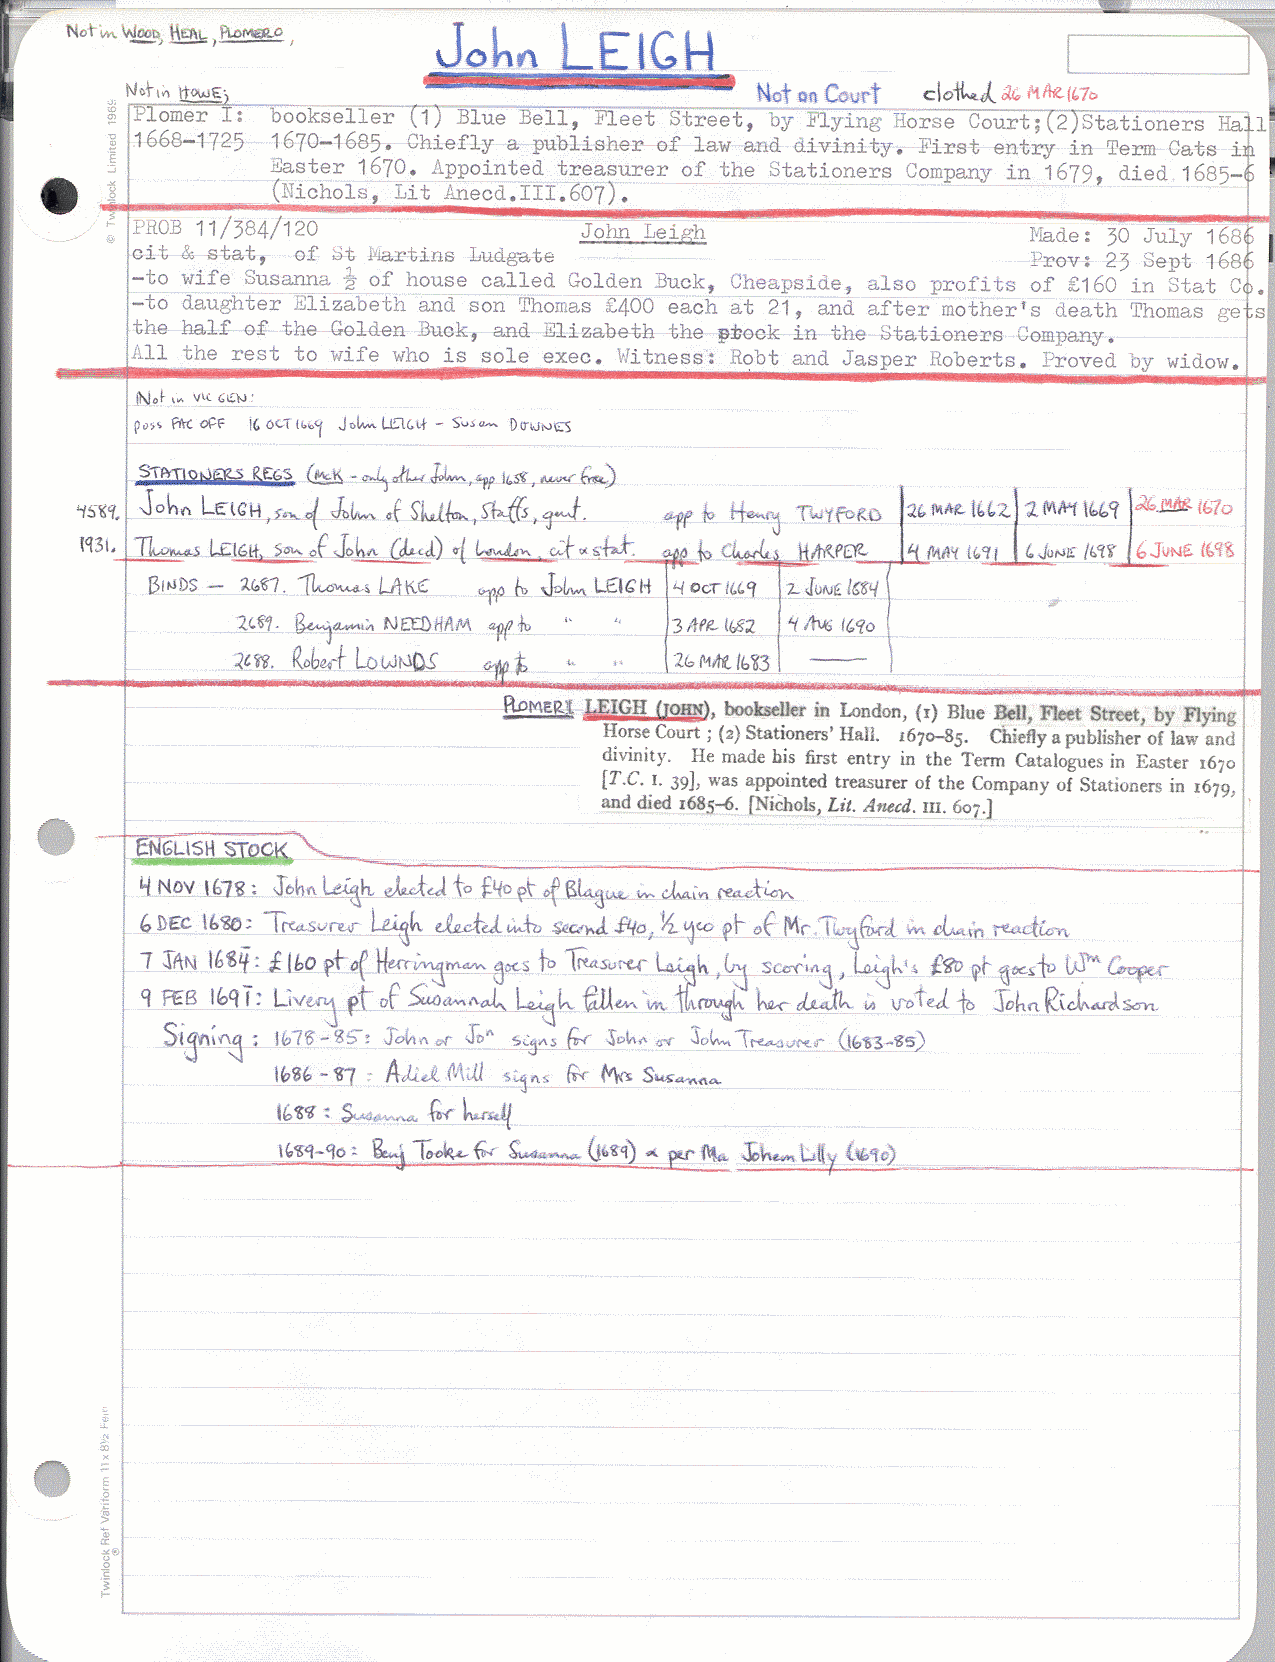 Not in WOOD, HEAL, PLOMER O,
John LEIGH
Not in HOWE;
Not on Court clothed 26 MAR 1670
Plomer I: bookseller (1) Blue Bell, Fleet Street, by Flying Horse Court;(2)Stationers Hall
1668-1725 1670-1685. Chiefly a publisher of law and divinity. First entry in Term Cats in
Easter 1670. Appointed treasurer of the Stationers Company in 1679, died 1685-6
(Nichols, Lit Anecd.III.607).
PROB 11/384/120 John Leigh Made: 30 July 1686
cit & stat, of St Martins Ludgate Prov: 23 Sept 1686
-to wife Susanna ½ of house called Golden Buck, Cheapside, also profits of £160 in Stat Co.
-to daughter Elizabeth and son Thomas £400 each at 21, and after mother's death Thomas gets
the half of the Golden Buck, and Elizabeth the stock in the Stationers Company.
All the rest to wife who is sole exec. Witness: Robt and Jasper Roberts. Proved by widow.
Not in VIC GEN:
poss FAC OFF 16 OCT 1669 John LEIGH - Susan DOWNES
STATIONERS REGS (McK - only other John, app 1658, never free)
4589. John LEIGH, son of John of Shelton, Staffs, gent. app to Henry TWYFORD 26 MAR 1662 2 MAY 1669 26 MAR 1670
1931. Thomas LEIGH, son of John (decd) of London, cit & stat. app to Charles HARPER 4 MAY 1691 6 JUNE 1698 6 JUNE 1698
BINDS - 2687. Thomas LAKE app to John LEIGH 4 OCT 1669 2 JUNE 1684
2689. Benjamin NEEDHAM app to " " 3 APR 1682 4 AUG 1690
2688. Robert LOWNDS app to " " 26 MAR 1683 —
PLOMER I LEIGH (JOHN), bookseller in London, (1) Blue Bell, Fleet Street, by Flying
Horse Court ; (2) Stationers' Hall. 1670–85. Chiefly a publisher of law and
divinity. He made his first entry in the Term Catalogues in Easter 1670
[T.C. I. 39], was appointed treasurer of the Company of Stationers in 1679,
and died 1685–6. [Nichols, Lit. Anecd. III. 607.]
ENGLISH STOCK
4 NOV 1678: John Leigh elected to £40 pt of Blague in chain reaction
6 DEC 1680: Treasurer Leigh elected into second £40, ½ yeo pt of Mr. Twyford in chain reaction
7 JAN 1684: £160 pt of Herringman goes to Treasurer Leigh, by scoring, Leigh's £80 pt goes to Wm Cooper
9 FEB 1691: Livery pt of Susannah Leigh fallen in through her death is voted to John Richardson
Signing: 1678-85: John or Jon signs for John or John Treasurer (1683-85)
1686-87: Adiel Mill signs for Mrs Susanna
1688: Susanna for herself
1689-90: Benj Tooke for Susanna (1689) & per Ma Lilly (1690)
© Twinlock Limited 1969
Twinlock Ref Variform 11 x 8½ Feint